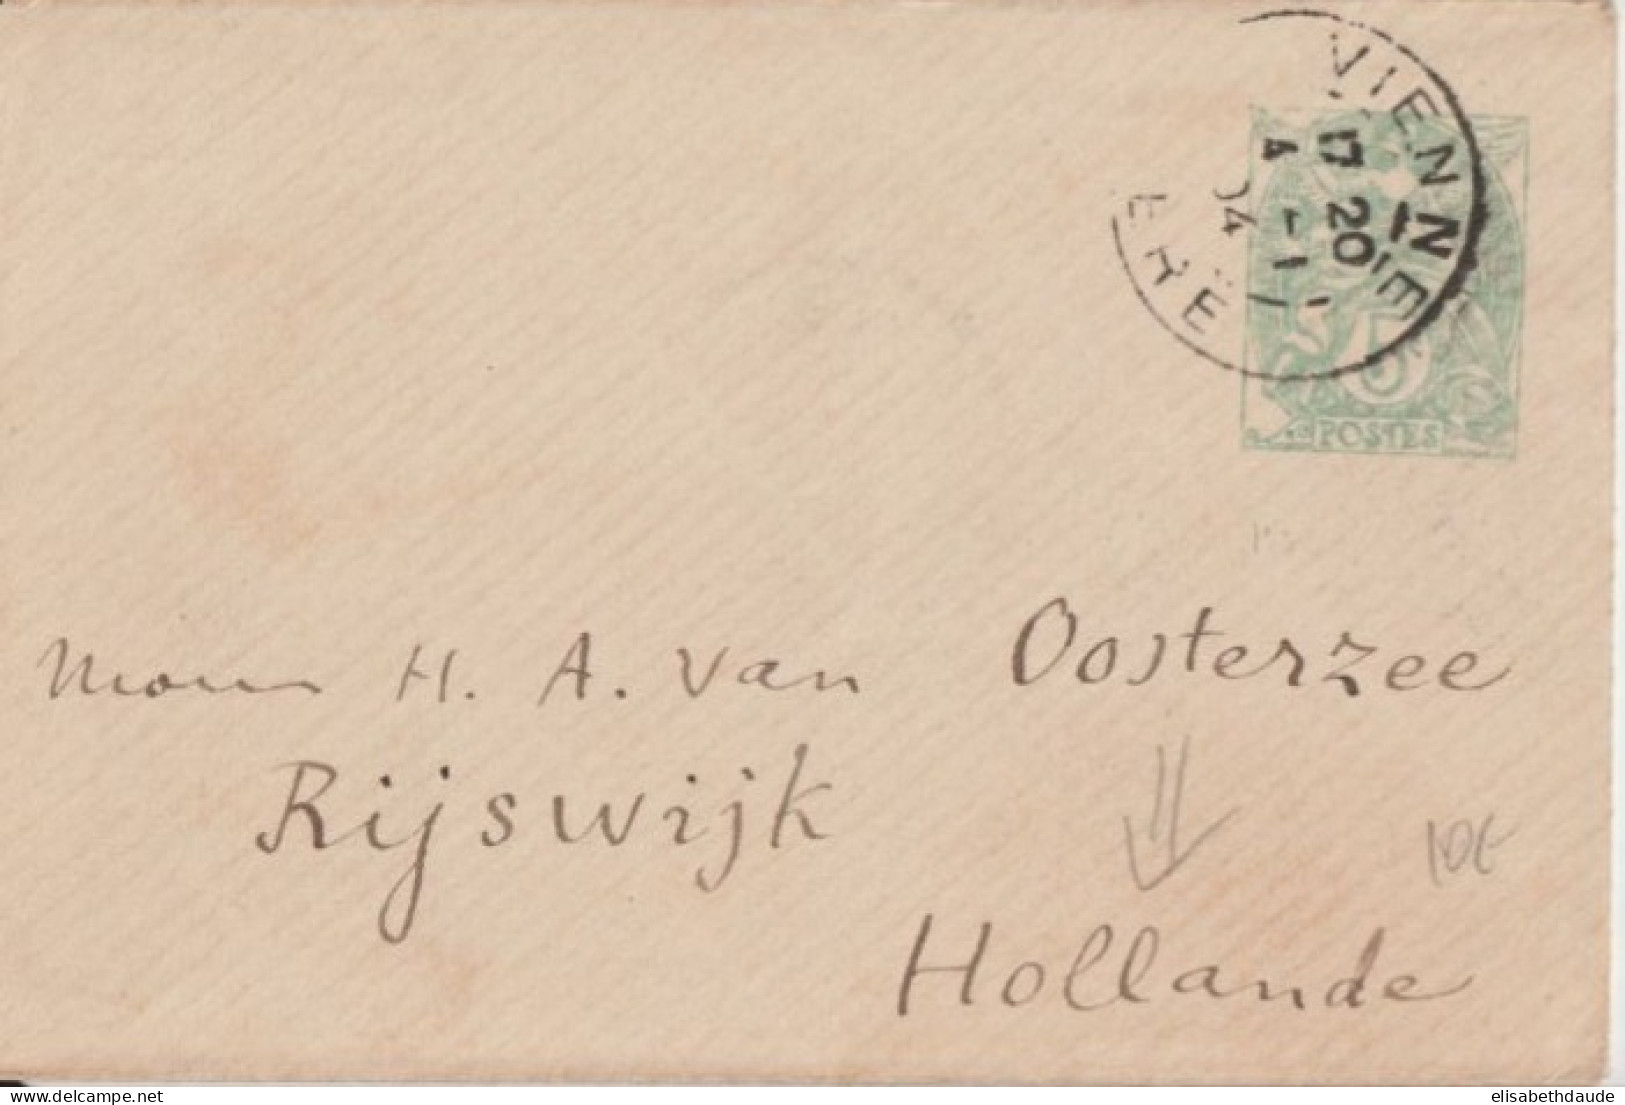 VIENNE
17 20
4 - 1
04
ISERE
5
POSTES
H. A. Van Oosterzee
Rijswijk
10€
Hollande
delcampe.net
elisabethdaude